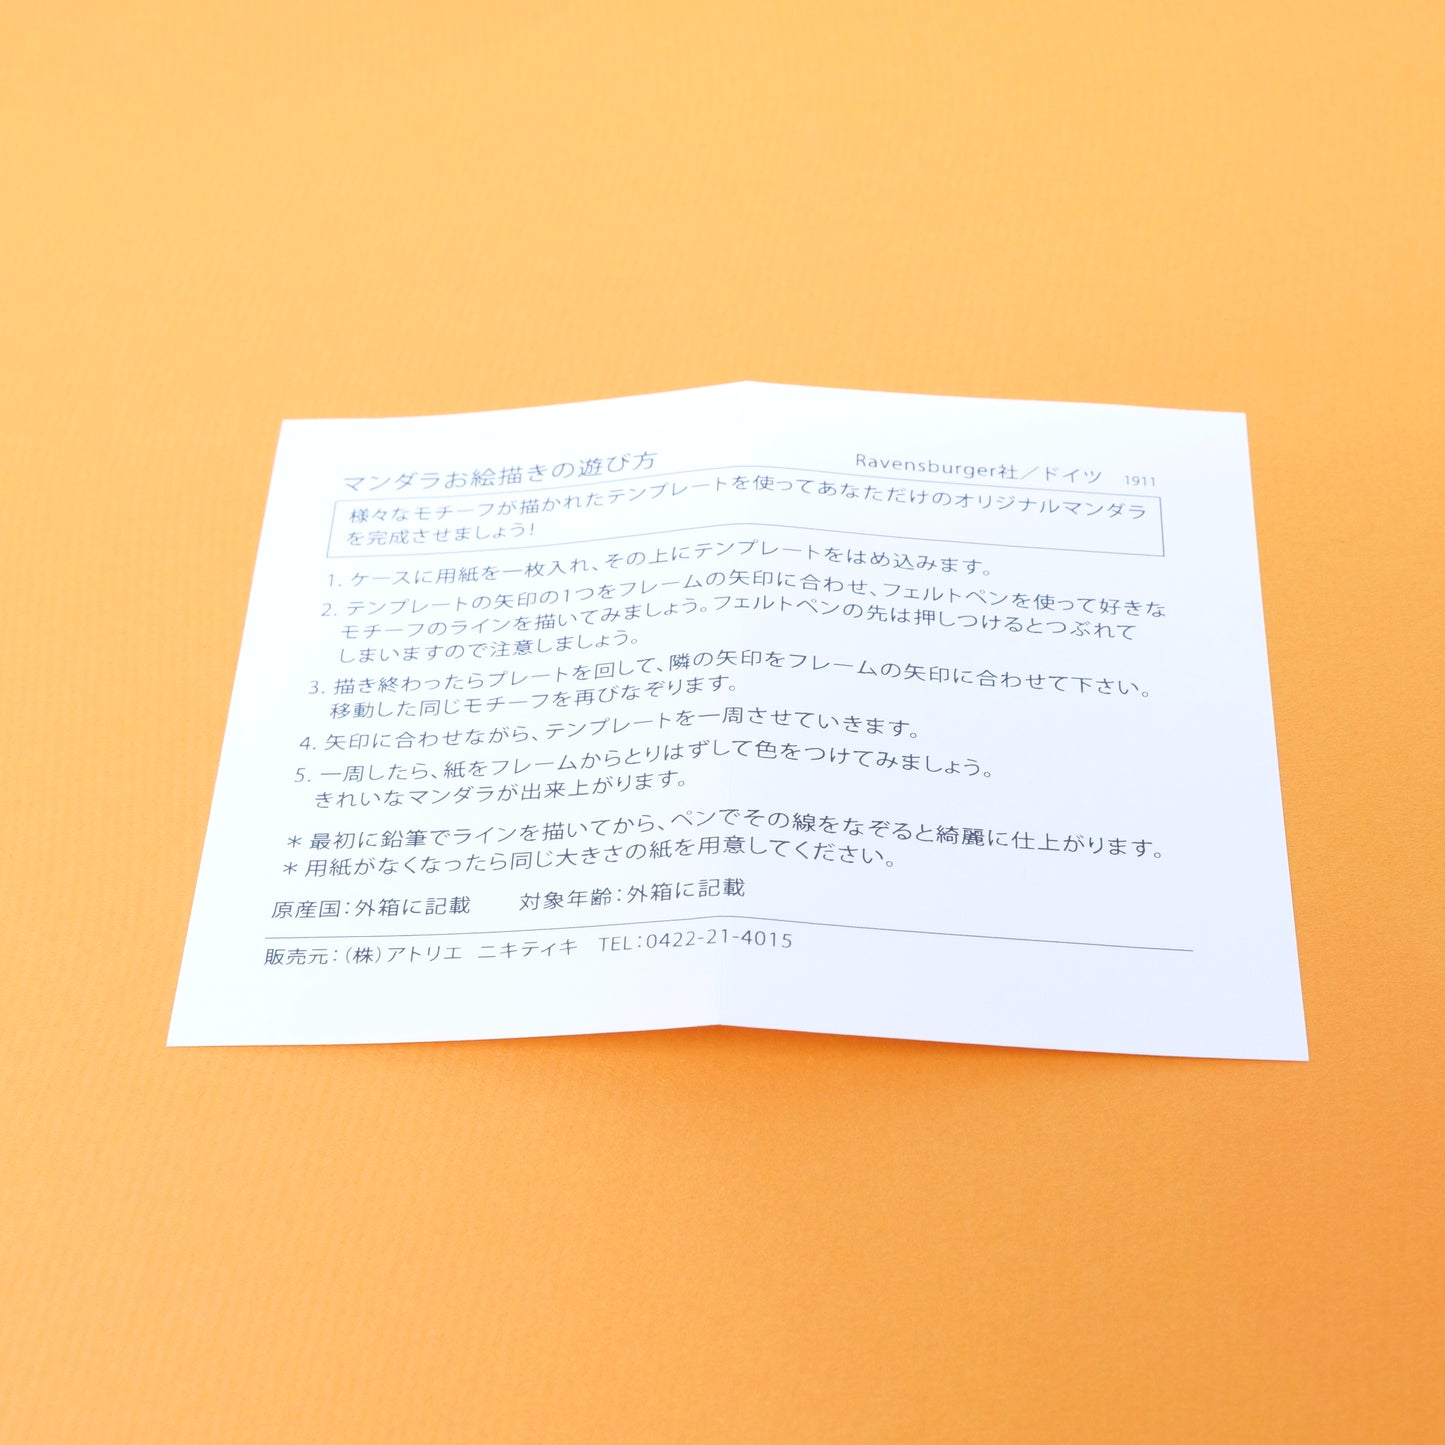 マンダラお絵描きの遊び方 Ravensburger社／ドイツ 1911
様々なモチーフが描かれたテンプレートを使ってあなただけのオリジナルマンダラ
を完成させましょう!
1. ケースに用紙を一枚入れ、その上にテンプレートをはめ込みます。
2. テンプレートの矢印の1つをフレームの矢印に合わせ、フェルトペンを使って好きな
モチーフのラインを描いてみましょう。フェルトペンの先は押しつけるとつぶれて
しまいますので注意しましょう。
3. 描き終わったらプレートを回して、隣の矢印をフレームの矢印に合わせて下さい。
移動した同じモチーフを再びなぞります。
4. 矢印に合わせながら、テンプレートを一周させていきます。
5. 一周したら、紙をフレームからとりはずして色をつけてみましょう。
きれいなマンダラが出来上がります。
＊最初に鉛筆でラインを描いてから、ペンでその線をなぞると綺麗に仕上がります。
＊用紙がなくなったら同じ大きさの紙を用意してください。
原産国：外箱に記載 対象年齢：外箱に記載
販売元：（株）アトリエ ニキティキ TEL：0422-21-4015